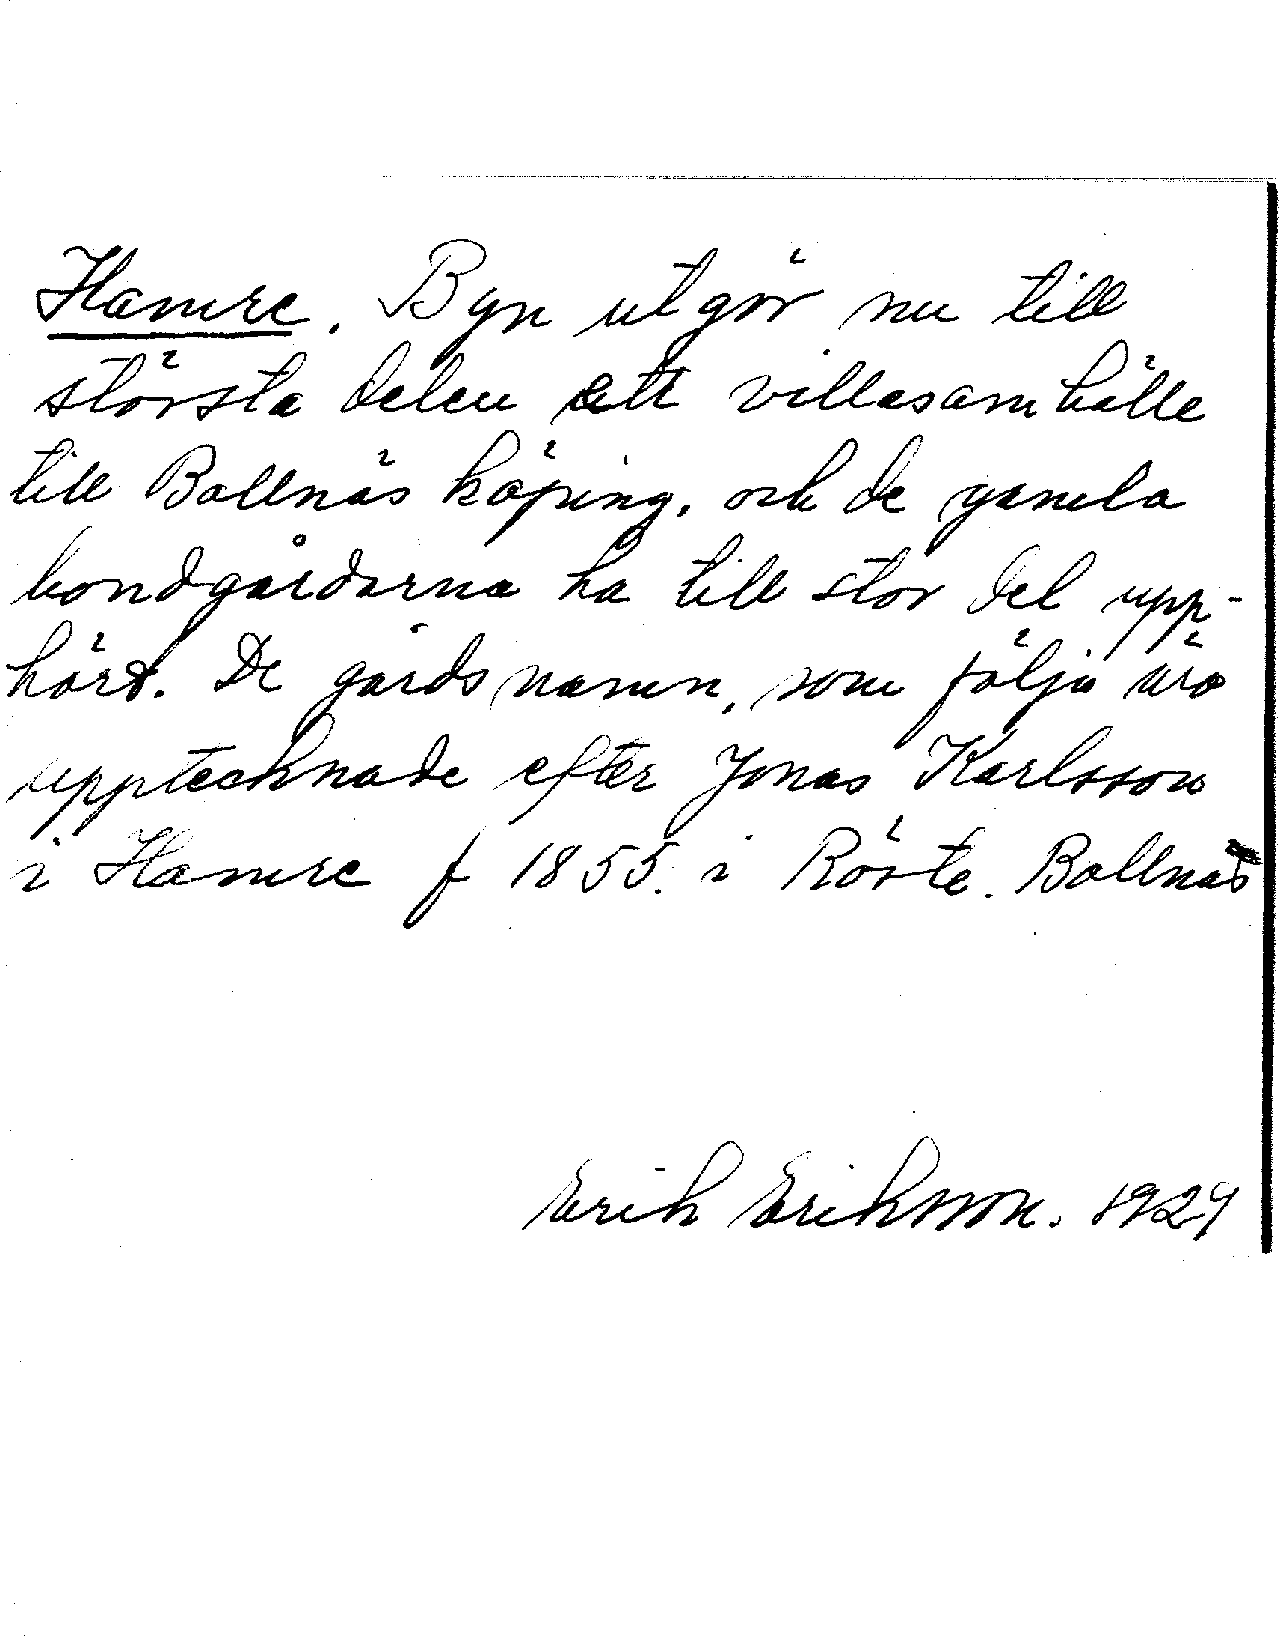 Hamre. Byn utgör nu till
största delen ett villasamhälle
till Bollnäs köping, och de gamla
bondgårdarna ha till stor del upp-
hört. De gårdsnamn, som följa äro
upptecknade efter Jonas Karlsson
i Hamre f 1855. i Röste. Bollnäs
Erik Eriksson. 1929